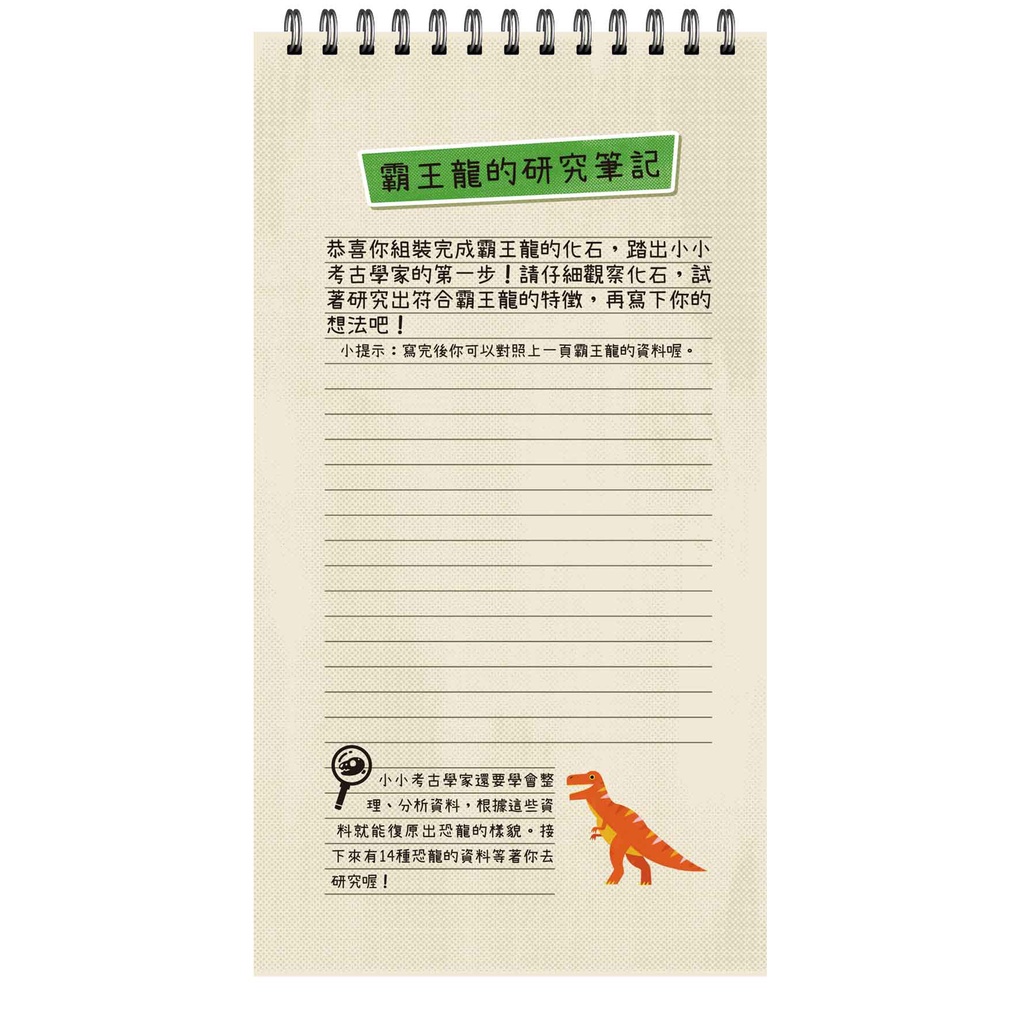 霸王龍的研究筆記
恭喜你組裝完成霸王龍的化石，踏出小小
考古學家的第一步！請仔細觀察化石，試
著研究出符合霸王龍的特徵，再寫下你的
想法吧！
小提示：寫完後你可以對照上一頁霸王龍的資料喔。
小小考古學家還要學會整
理、分析資料，根據這些資
料就能復原出恐龍的樣貌。接
下來有14種恐龍的資料等著你去
研究喔！